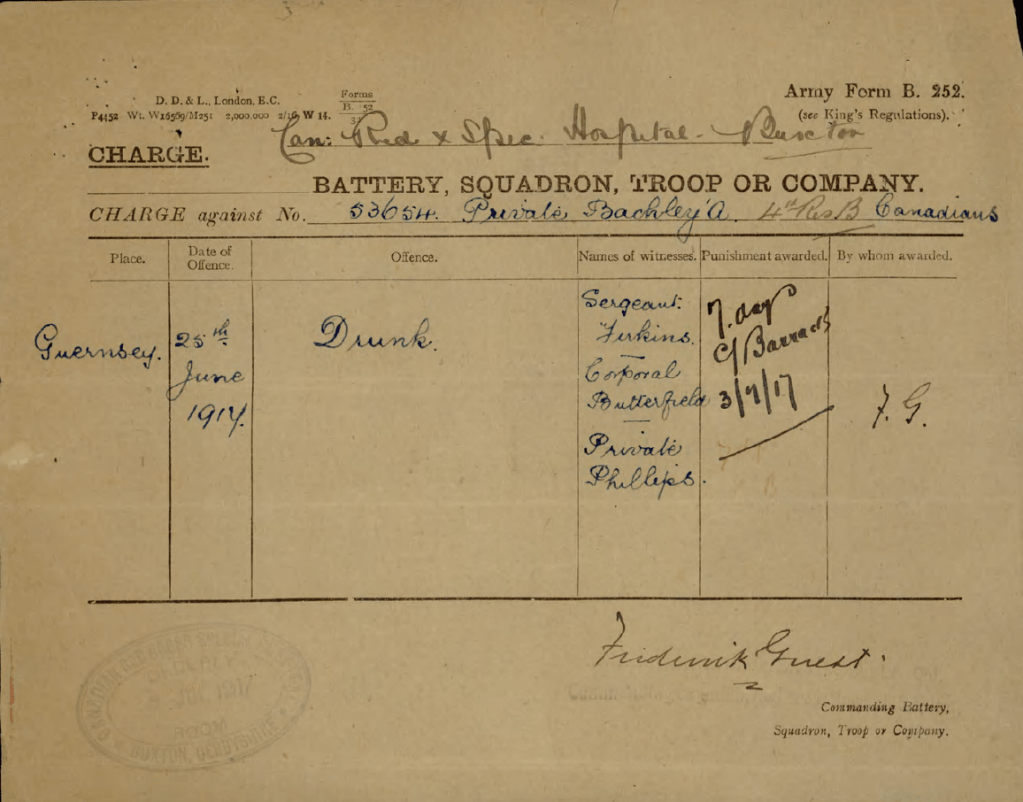 D. D. & L., London, E.C.
P4452 Wt. W16569/M251 2,000,000 2/16 W 14.
Forms
B. 252
Army Form B. 252.
(see King's Regulations).
Can: Red x Spec. Hospital - Buxton
CHARGE.
BATTERY, SQUADRON, TROOP OR COMPANY.
CHARGE against No. 53654. Private Bachley A. 4th Res B Canadians
Place. Date of Offence. Offence. Names of witnesses. Punishment awarded. By whom awarded.
Guernsey. 25th June 1917. Drunk.
Sergeant
Firkins.
Corporal
Butterfield
Private
Phillips.
7. day
C/Barracks
3/7/17
F. G.
Frederick Guest
Commanding Battery,
Squadron, Troop or Company.
ROOM
BUXTON, DERBYSHIRE